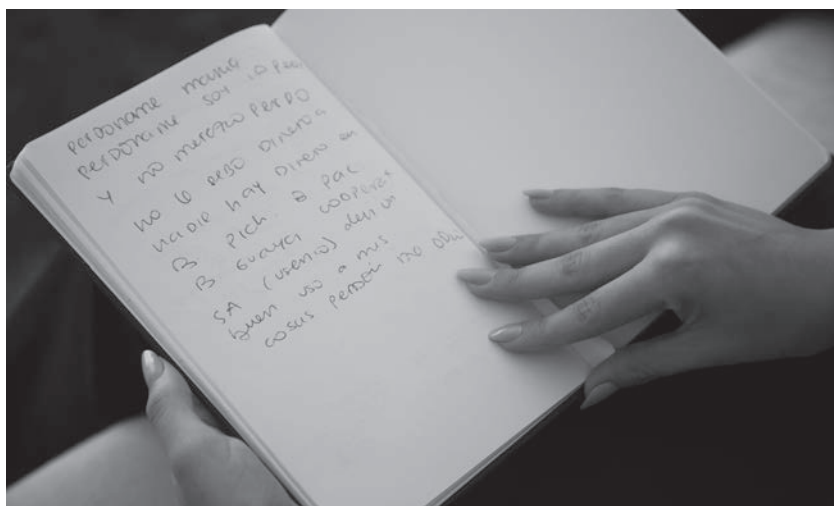 perdoname mama
PERDÓNAME SOY LO PEO
Y NO MEREZCO PERDO
NO LE DEBO DINERO A
NADIE HAY DINERO EN
B PICH. B PAC
B GUAYA COOPERAT
SA (USEMLO) den un
buen uso a mis
cosas PERdón no